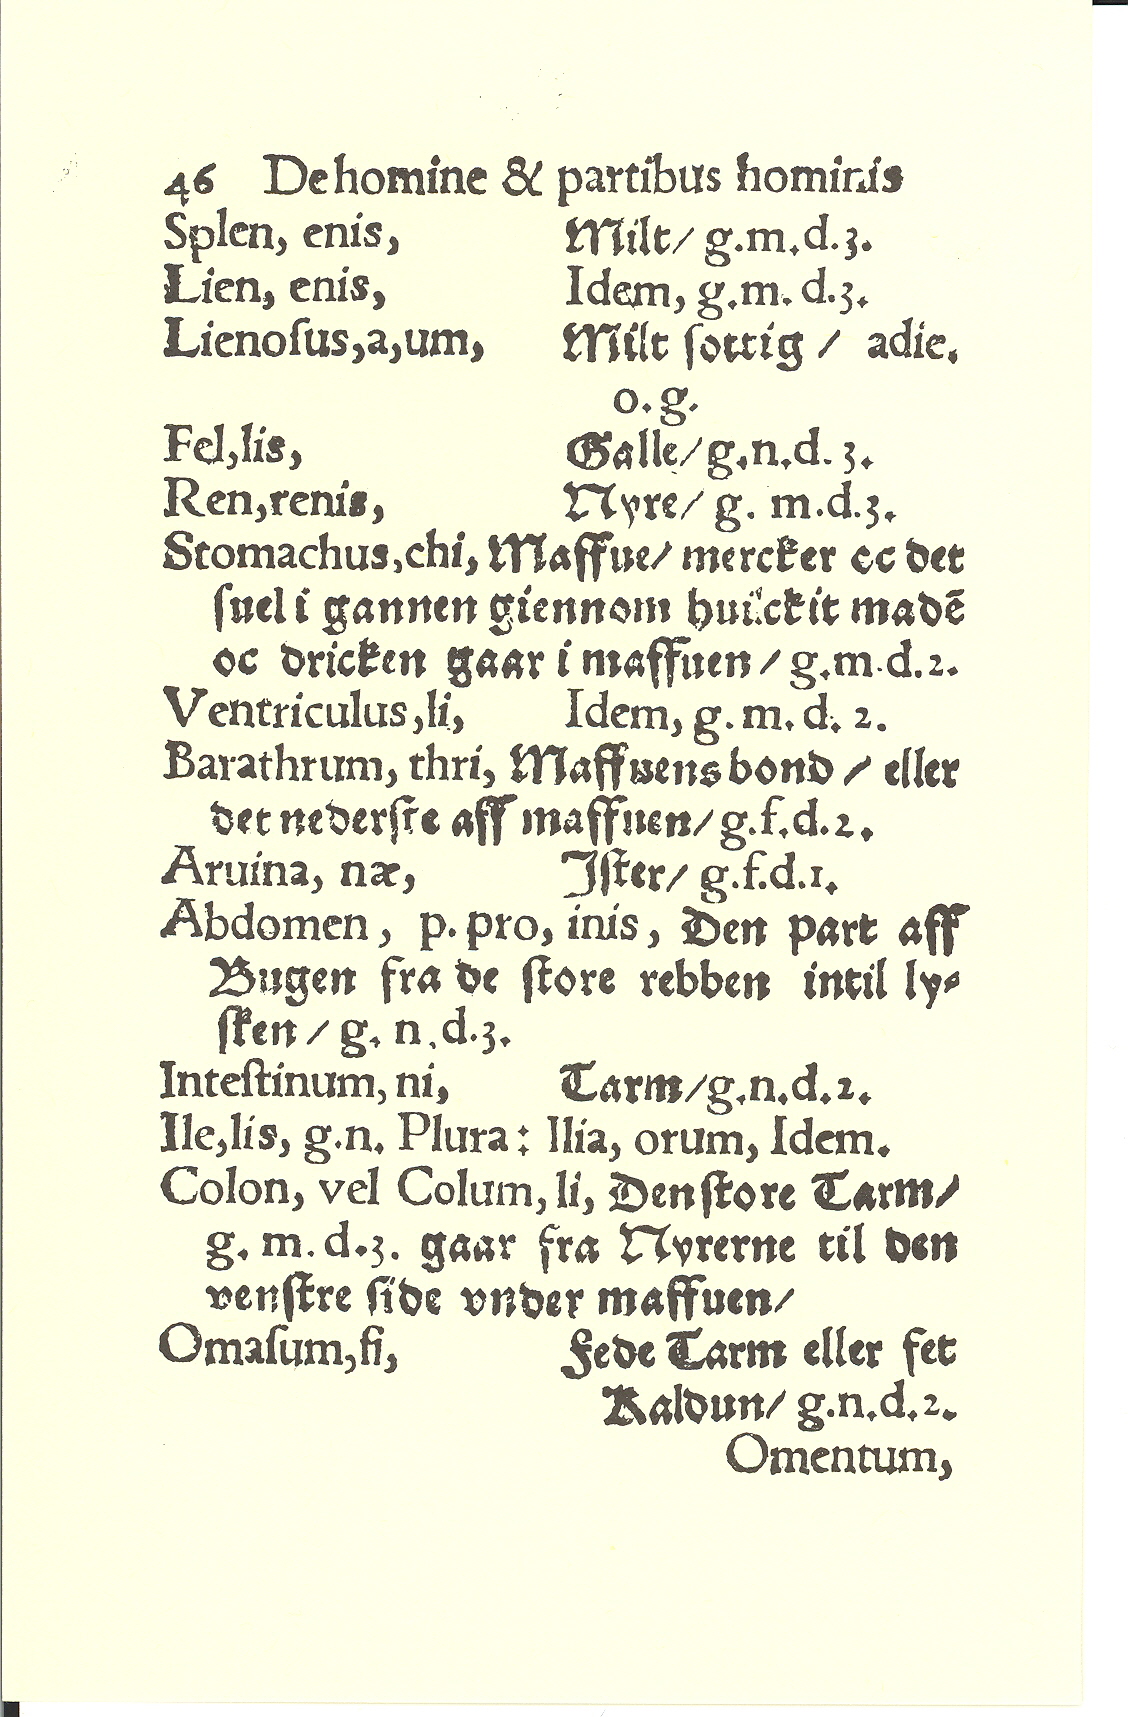 46 De homine & partibus hominis
Splen, enis, Milt/ g.m.d.3.
Lien, enis, Idem, g.m.d.3.
Lienoſus,a,um, Milt ſottig / adie.
o.g.
Fel,lis, Galle/g.n.d.3.
Ren,renis, Nyre/ g. m.d.3.
Stomachus,chi, Maffue/ mercker oc det
ſuel i gannen giennom huilckit madē
oc dricken gaar i maffuen / g.m.d.2.
Ventriculus,li, Idem, g.m.d.2.
Barathrum, thri, Maffuens bond / eller
det nederſte aff maffuen/ g.f.d.2.
Aruina, næ, Iſter/ g.f.d.1.
Abdomen, p.pro, inis, Den part aff
Bugen fra de ſtore rebben intil ly⸗
ſken / g. n.d.3.
Inteſtinum, ni, Tarm/g.n.d.2.
Ile,lis, g.n. Plura: Ilia, orum, Idem.
Colon, vel Colum, li, Den ſtore Tarm/
g. m.d.3. gaar fra Nyrerne til den
venſtre ſide vnder maffuen/
Omaſum,ſi, Fede Tarm eller fet
Kaldun/ g.n.d.2.
Omentum,